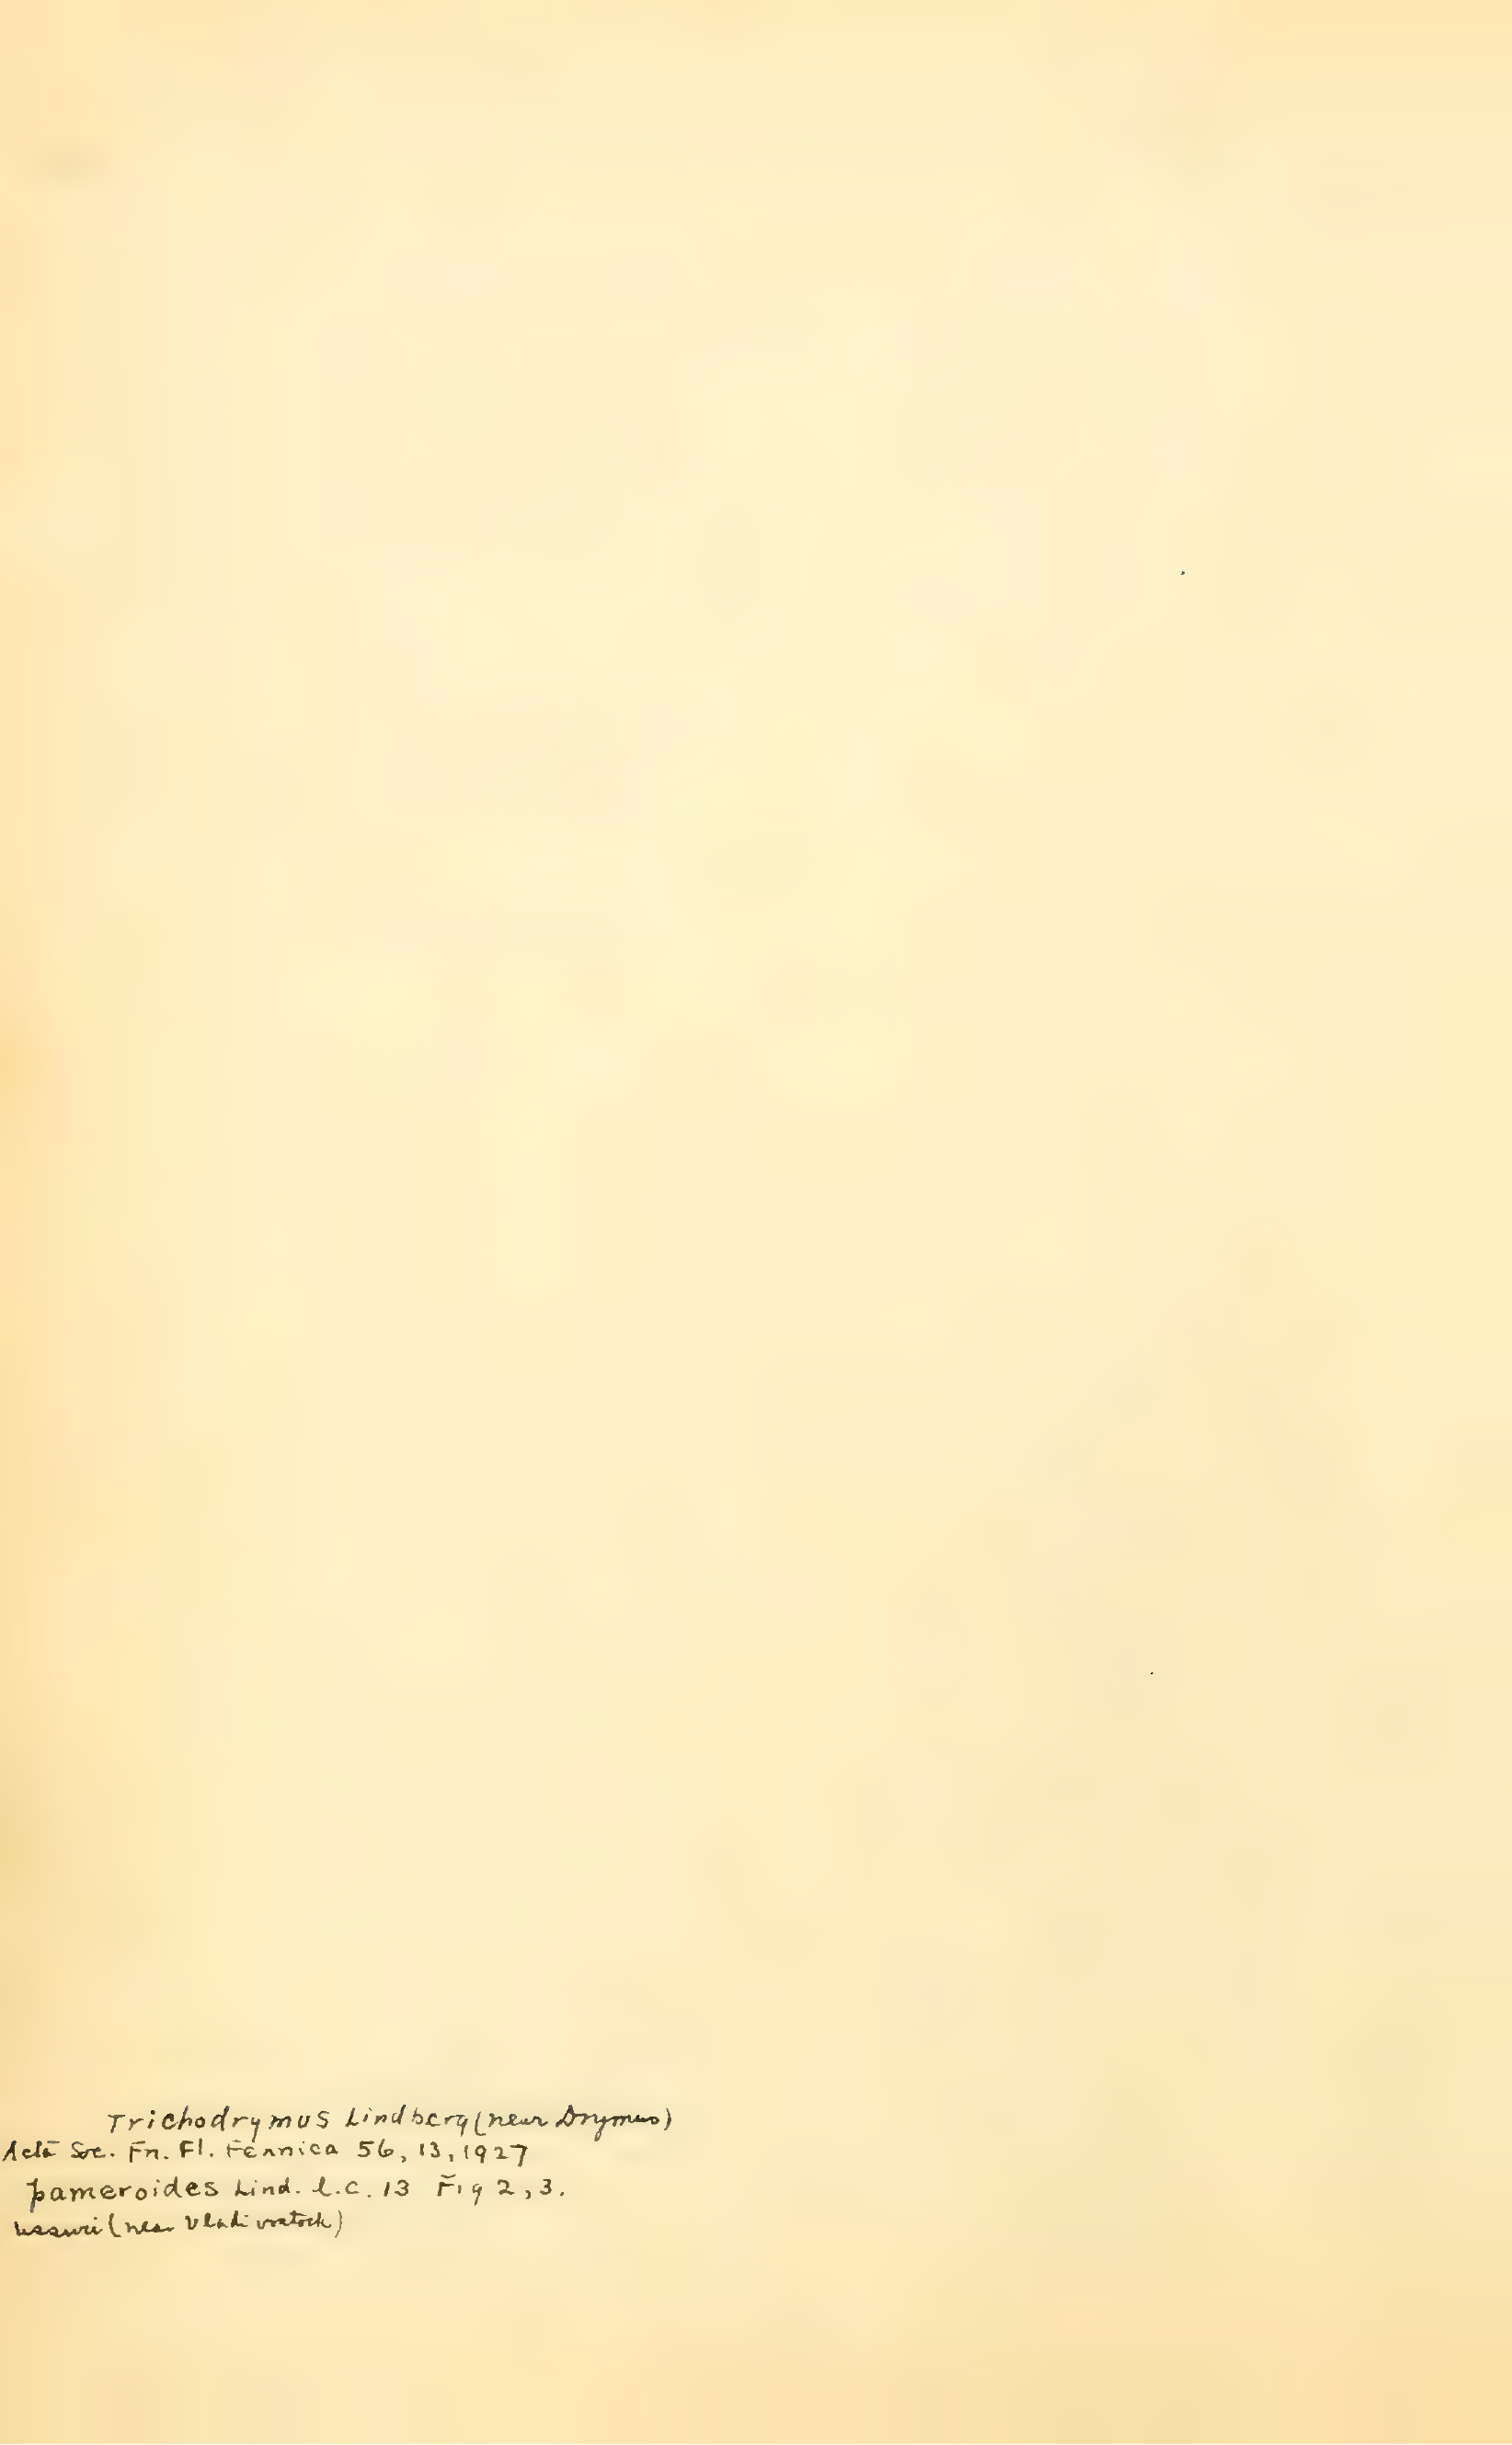 Trichodrymus Lindberg (near Drymus)
Acta Soc. Fn. Fl. Fennica 56, 13, 1927
pameroides Lind. l.c. 13 Fig 2, 3.
ussuri (near Vladivostock)